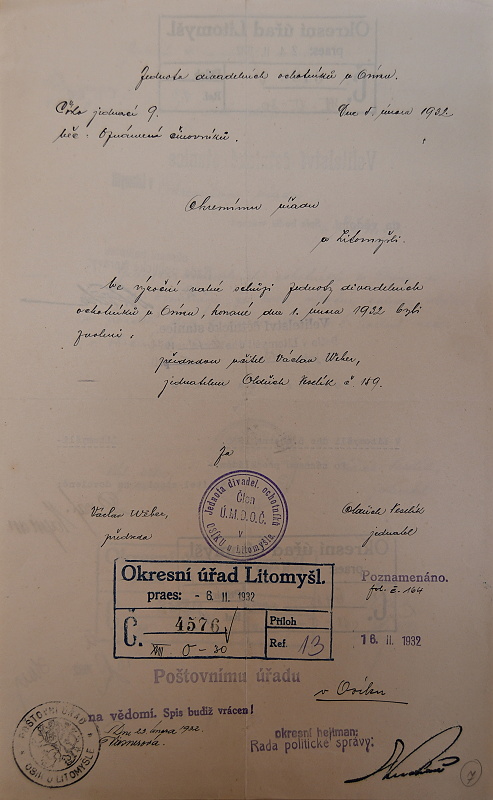 Jednota divadelních ochotníků v Osíku.
Číslo jednací 9. Dne 5. února 1932
Věc: Oznámení činovníků.
Okresnímu úřadu
v Litomyšli.
Ve výroční valné schůzi Jednoty divadelních
ochotníků v Osíku, konané dne 1. února 1932 byli
zvoleni:
předsedou učitel Václav Weber,
jednatelem Oldřich Veselík č 189.
Za
Jednota divadel. ochotníků
Člen
Ú.M.D.O.Č.
v
OSÍKU u Litomyšle
Václav Weber, Oldřich Veselík
předseda jednatel
Okresní úřad Litomyšl.
praes: - 6. II. 1932
Č. 4576
Příloh
Ref. 13
0 - 30
Poznamenáno.
fol. č. 164
16. II. 1932
Poštovnímu úřadu
v Osíku
na vědomí. Spis budiž vrácen!
Dne 23 února 1932.
POŠTOVNÍ ÚŘAD
OSÍK U LITOMYŠLE
okresní hejtman:
Rada politické správy:
7